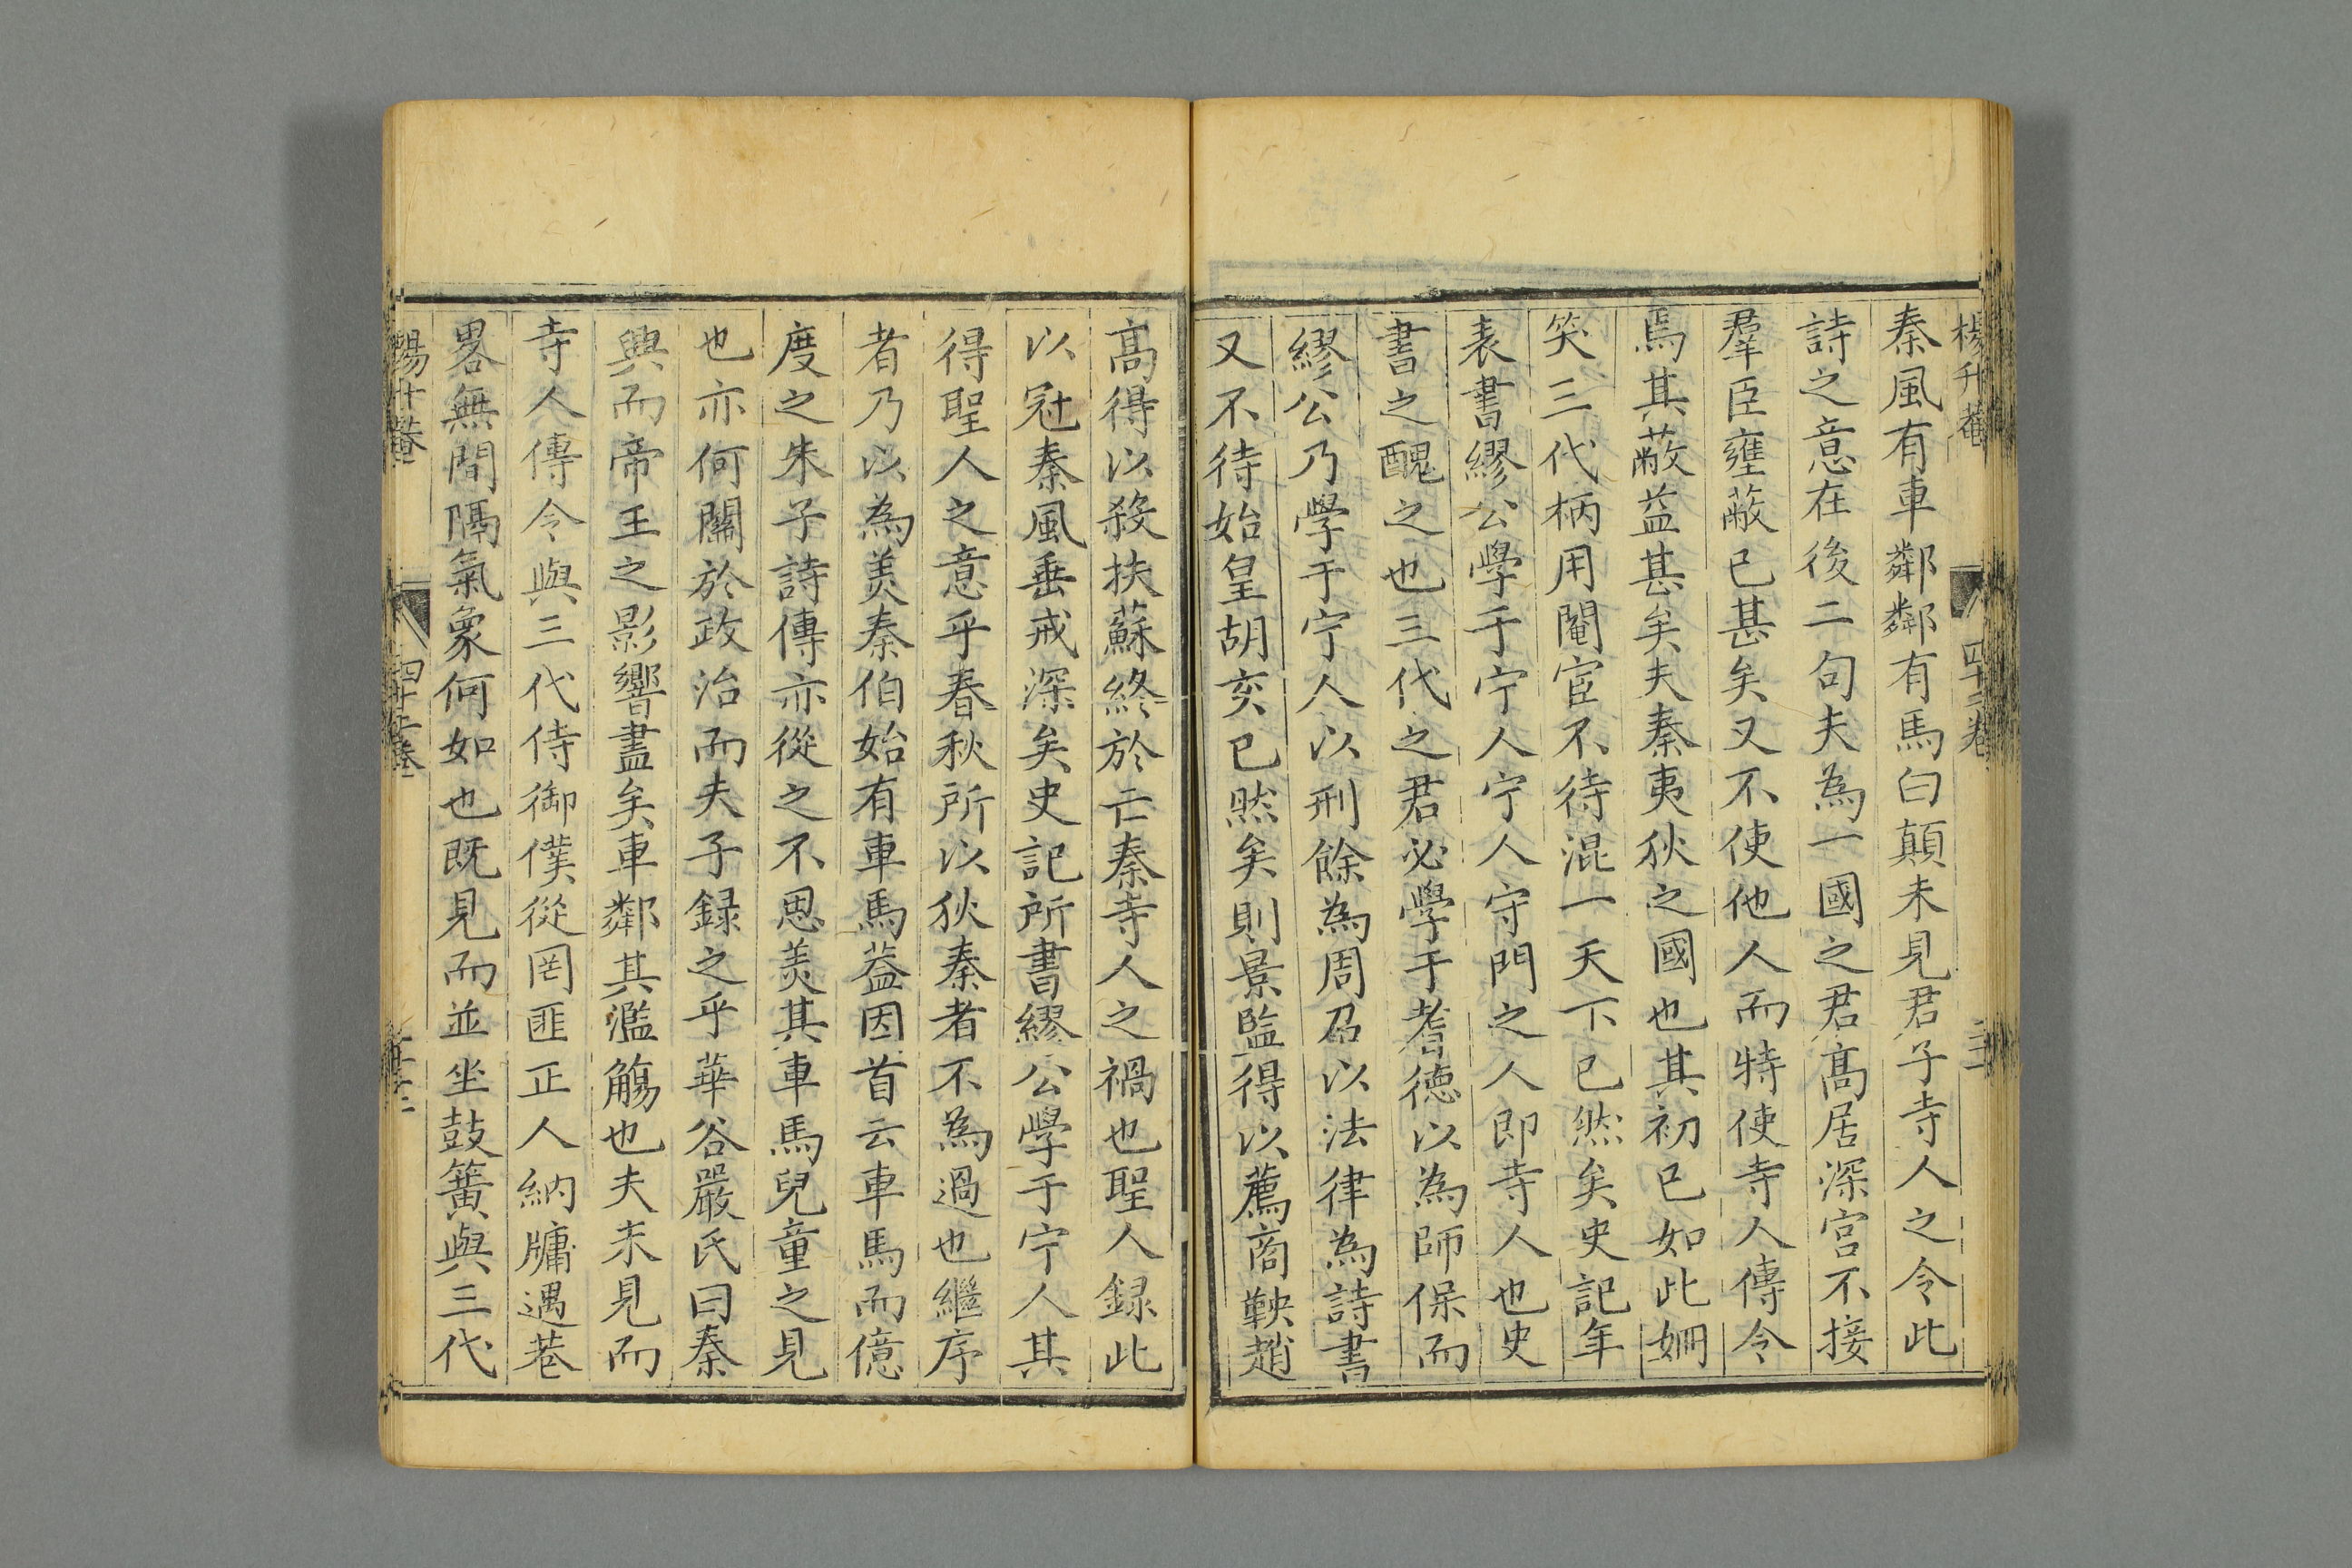 楊升菴
四十二卷
秦風有車鄰鄰有馬白顛未見君子寺人之令此
詩之意在後二句夫為一國之君高居深宮不接
羣臣壅蔽已甚矣又不使他人而特使寺人傳令
焉其蔽益甚矣夫秦夷狄之國也其初已如此姍
笑三代柄用閹宦不待混一天下已然矣史記年
表書繆公學于宁人宁人守門之人即寺人也史
書之醜之也三代之君必學于耆德以為師保而
繆公乃學于宁人以刑餘為周召以法律為詩書
又不待始皇胡亥已然矣則景監得以薦商鞅趙
高得以殺扶蘇終於亡秦寺人之禍也聖人録此
以冠秦風垂戒深矣史記所書繆公學于宁人其
得聖人之意乎春秋所以狄秦者不為過也繼序
者乃以為羙秦伯始有車馬葢因首云車馬而億
度之朱子詩傳亦從之不思羙其車馬兒童之見
也亦何關於政治而夫子録之乎華谷嚴氏曰秦
興而帝王之影響盡矣車鄰其濫觴也夫未見而
寺人傳令與三代侍御僕從罔匪正人納牖遇巷
畧無間隔氣象何如也既見而並坐鼓簧與三代
楊升菴
四十二卷